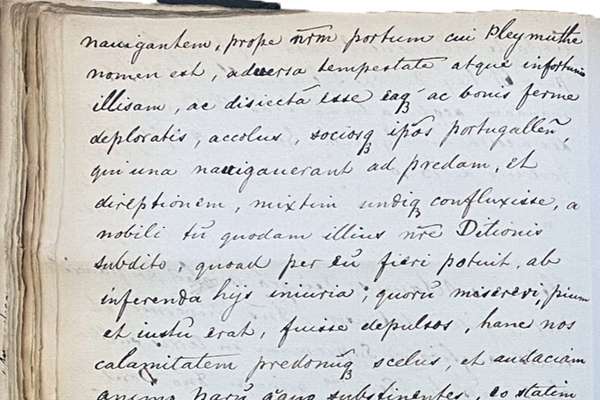 nauigantem, prope nr̃m portum cui Pleymuthe
nomen est, aduersa tempestate atque infortunio
illisam, ac disiectā esse eaq́ȝ ac bonis ferme
deploratis, accolus, sociosqȝ ip̃os portugalleñ,
qui una nauigauerant ad predam, et
direptionem, mixtim undiqȝ confluxisse, a
nobili tū quodam illius nr̃e Ditionis
subdito, quoad per eū fieri potuit, ab
inferenda hijs iniuria; quorū misereri, pium
et iustū erat, fuisse depulsos, hanc nos
calamitatem predonūqȝ scelus, et audaciam
animo parū substinentes, eo statim